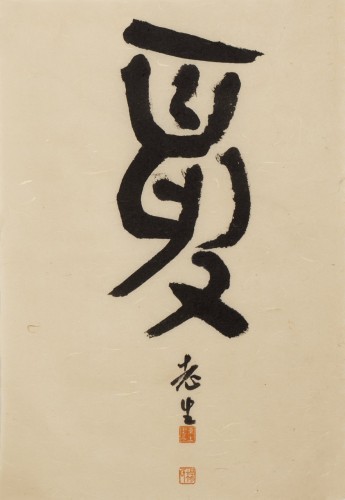 夏
老生